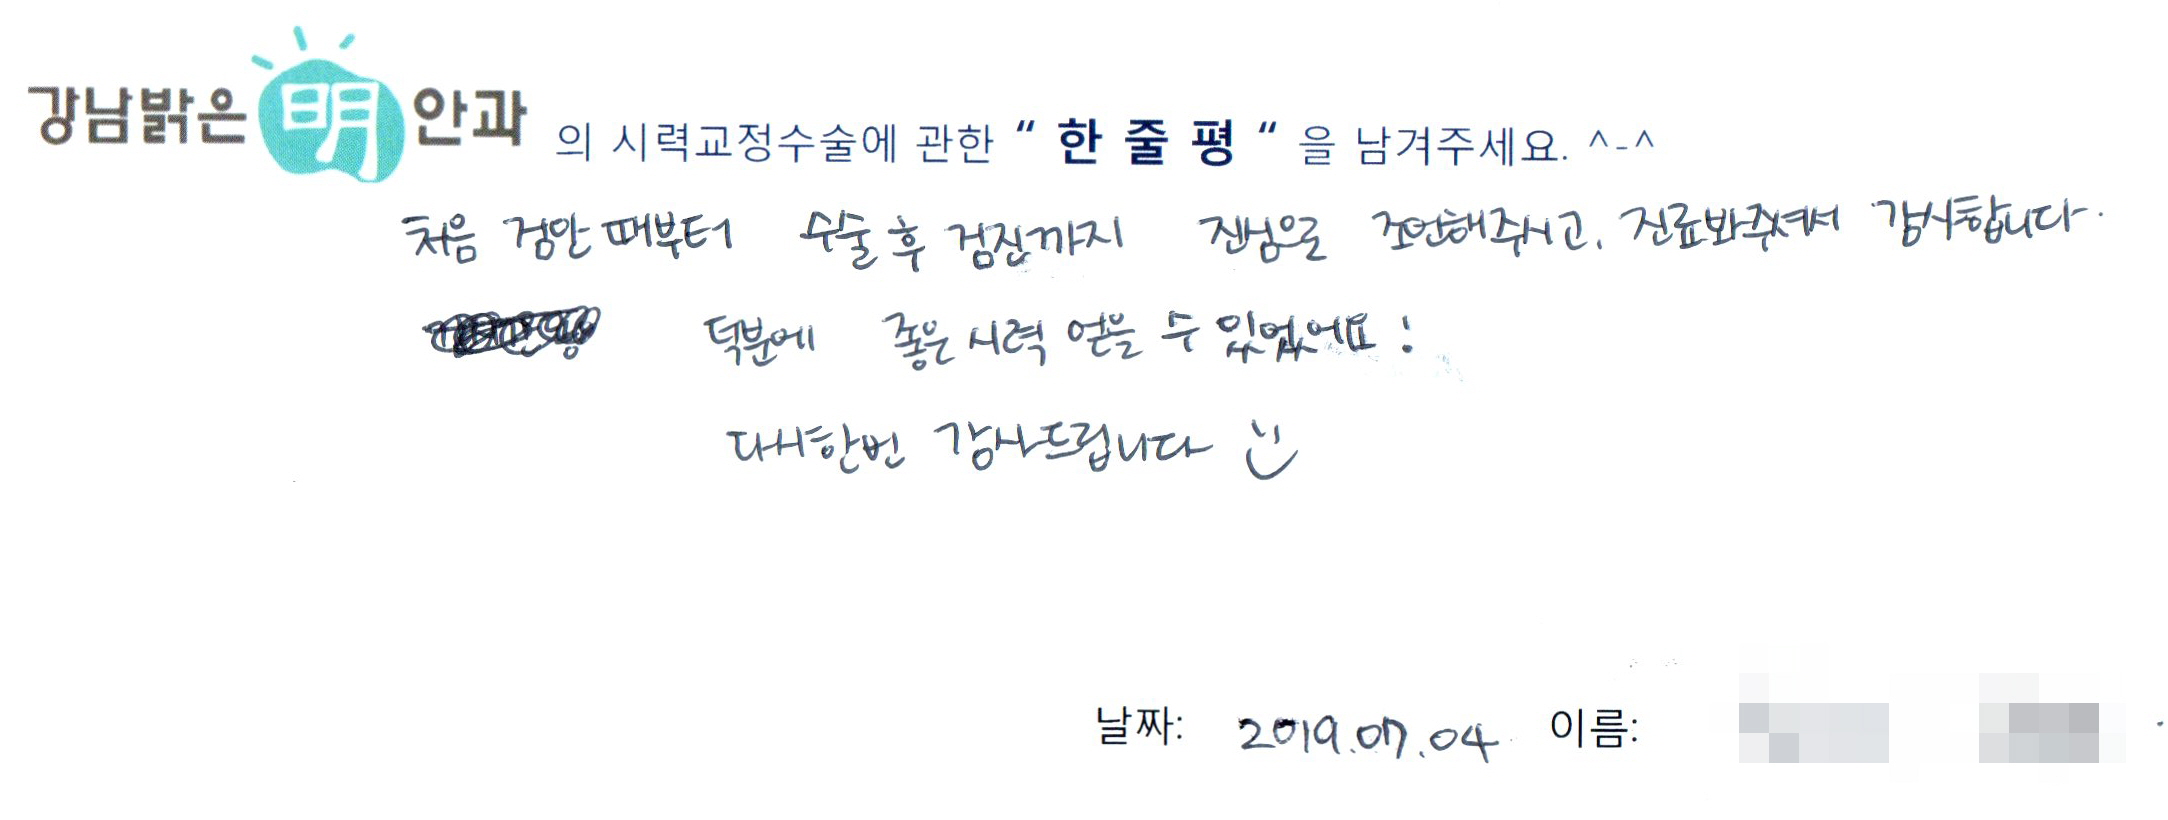 강남밝은 明 안과 의 시력교정수술에 관한 “ 한 줄 평 “ 을 남겨주세요. ^-^
처음 검안 때부터 수술 후 검진까지 진심으로 조언해주시고, 진료봐주셔서 감사합니다.
덕분에 좋은 시력 얻을 수 있었어요!
다시한번 감사드립니다
날짜: 2019.07.04 이름: